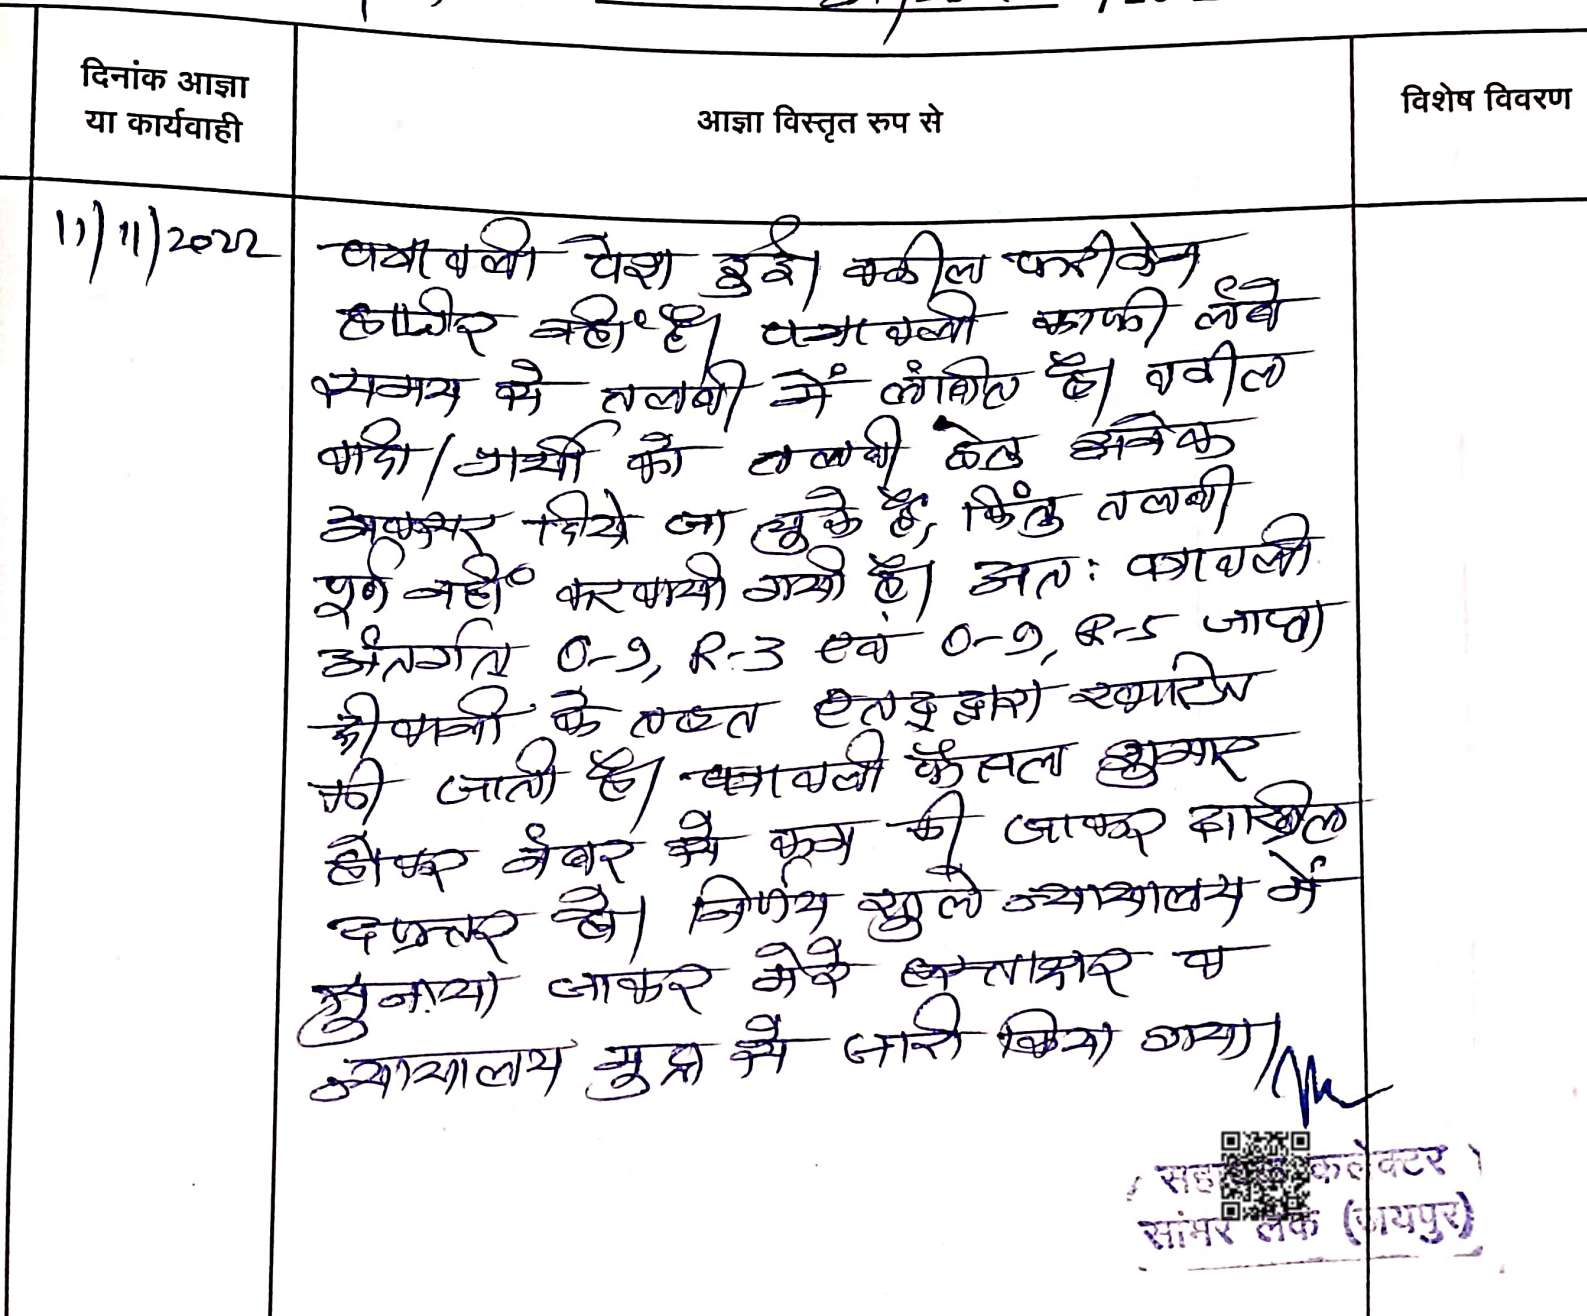 दिनांक आज्ञा
या कार्यवाही
आज्ञा विस्तृत रुप से
विशेष विवरण
11/11/2022
पत्रावली पेश हुई। वकील फरीकेन
हाजीर नहीं है। पत्रावली काफी लंबे
समय से तलबी में लंबीत है। वकील
वादी/प्रार्थी को तलबी हेतु अनेक
अवसर दिये जा चुके हैं, किंतु तलबी
पूर्ण नहीं करवायी गयी है। अतः पत्रावली
अंतर्गत O-9, R-3 एवं O-9, R-5 जाप्ता
दीवानी के तहत एतद् द्वारा खारीज
की जाती है। पत्रावली फैसल शुमार
होकर नंबर से कम की जाकर दाखील
दफ्तर हो। निर्णय खुले न्यायालय में
सुनाया जाकर मेरे हस्ताक्षर व
न्यायालय मुद्रा से जारी किया गया।
कलेक्टर
सांभर लेक (जयपुर)